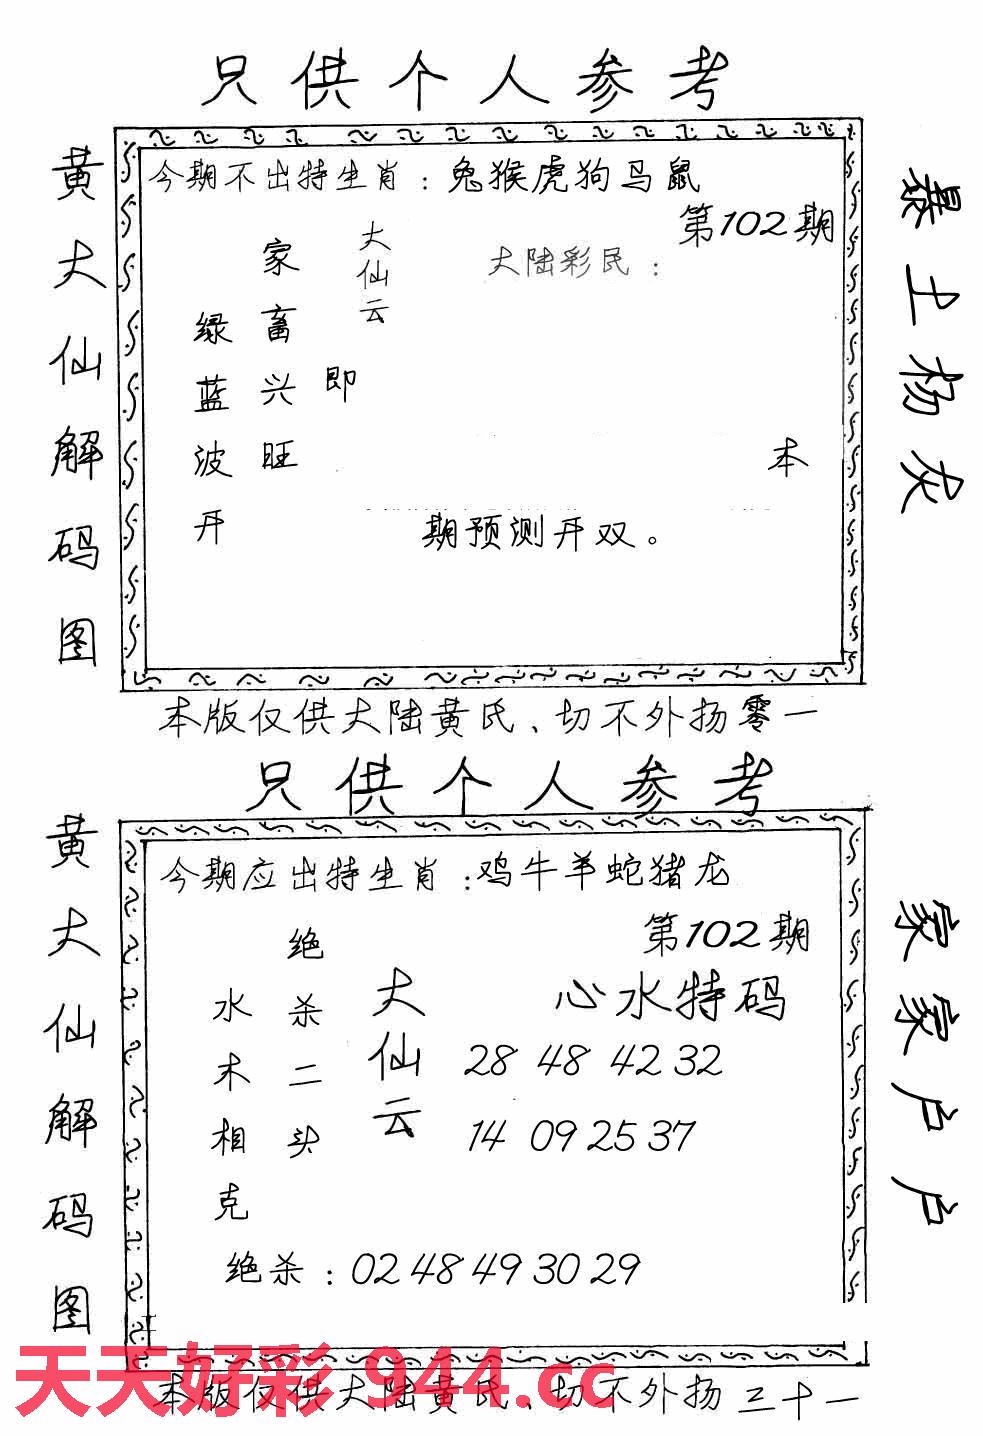 只供个人参考
黄大仙解码图
今期不出特生肖：兔猴虎狗马鼠
第102期
大陆彩民：
大仙云
家畜兴旺
绿蓝波开
即
本
期预测开双。
暴土杨灰
本版仅供大陆黄氏、切不外扬零一
只供个人参考
黄大仙解码图
今期应出特生肖：鸡牛羊蛇猪龙
第102期
心水特码
大仙云
绝杀二头
水木相克
28 48 42 32
14 09 25 37
绝杀：02 48 49 30 29
家家户户
天天好彩 944.cc
本版仅供大陆黄氏、切不外扬三十一